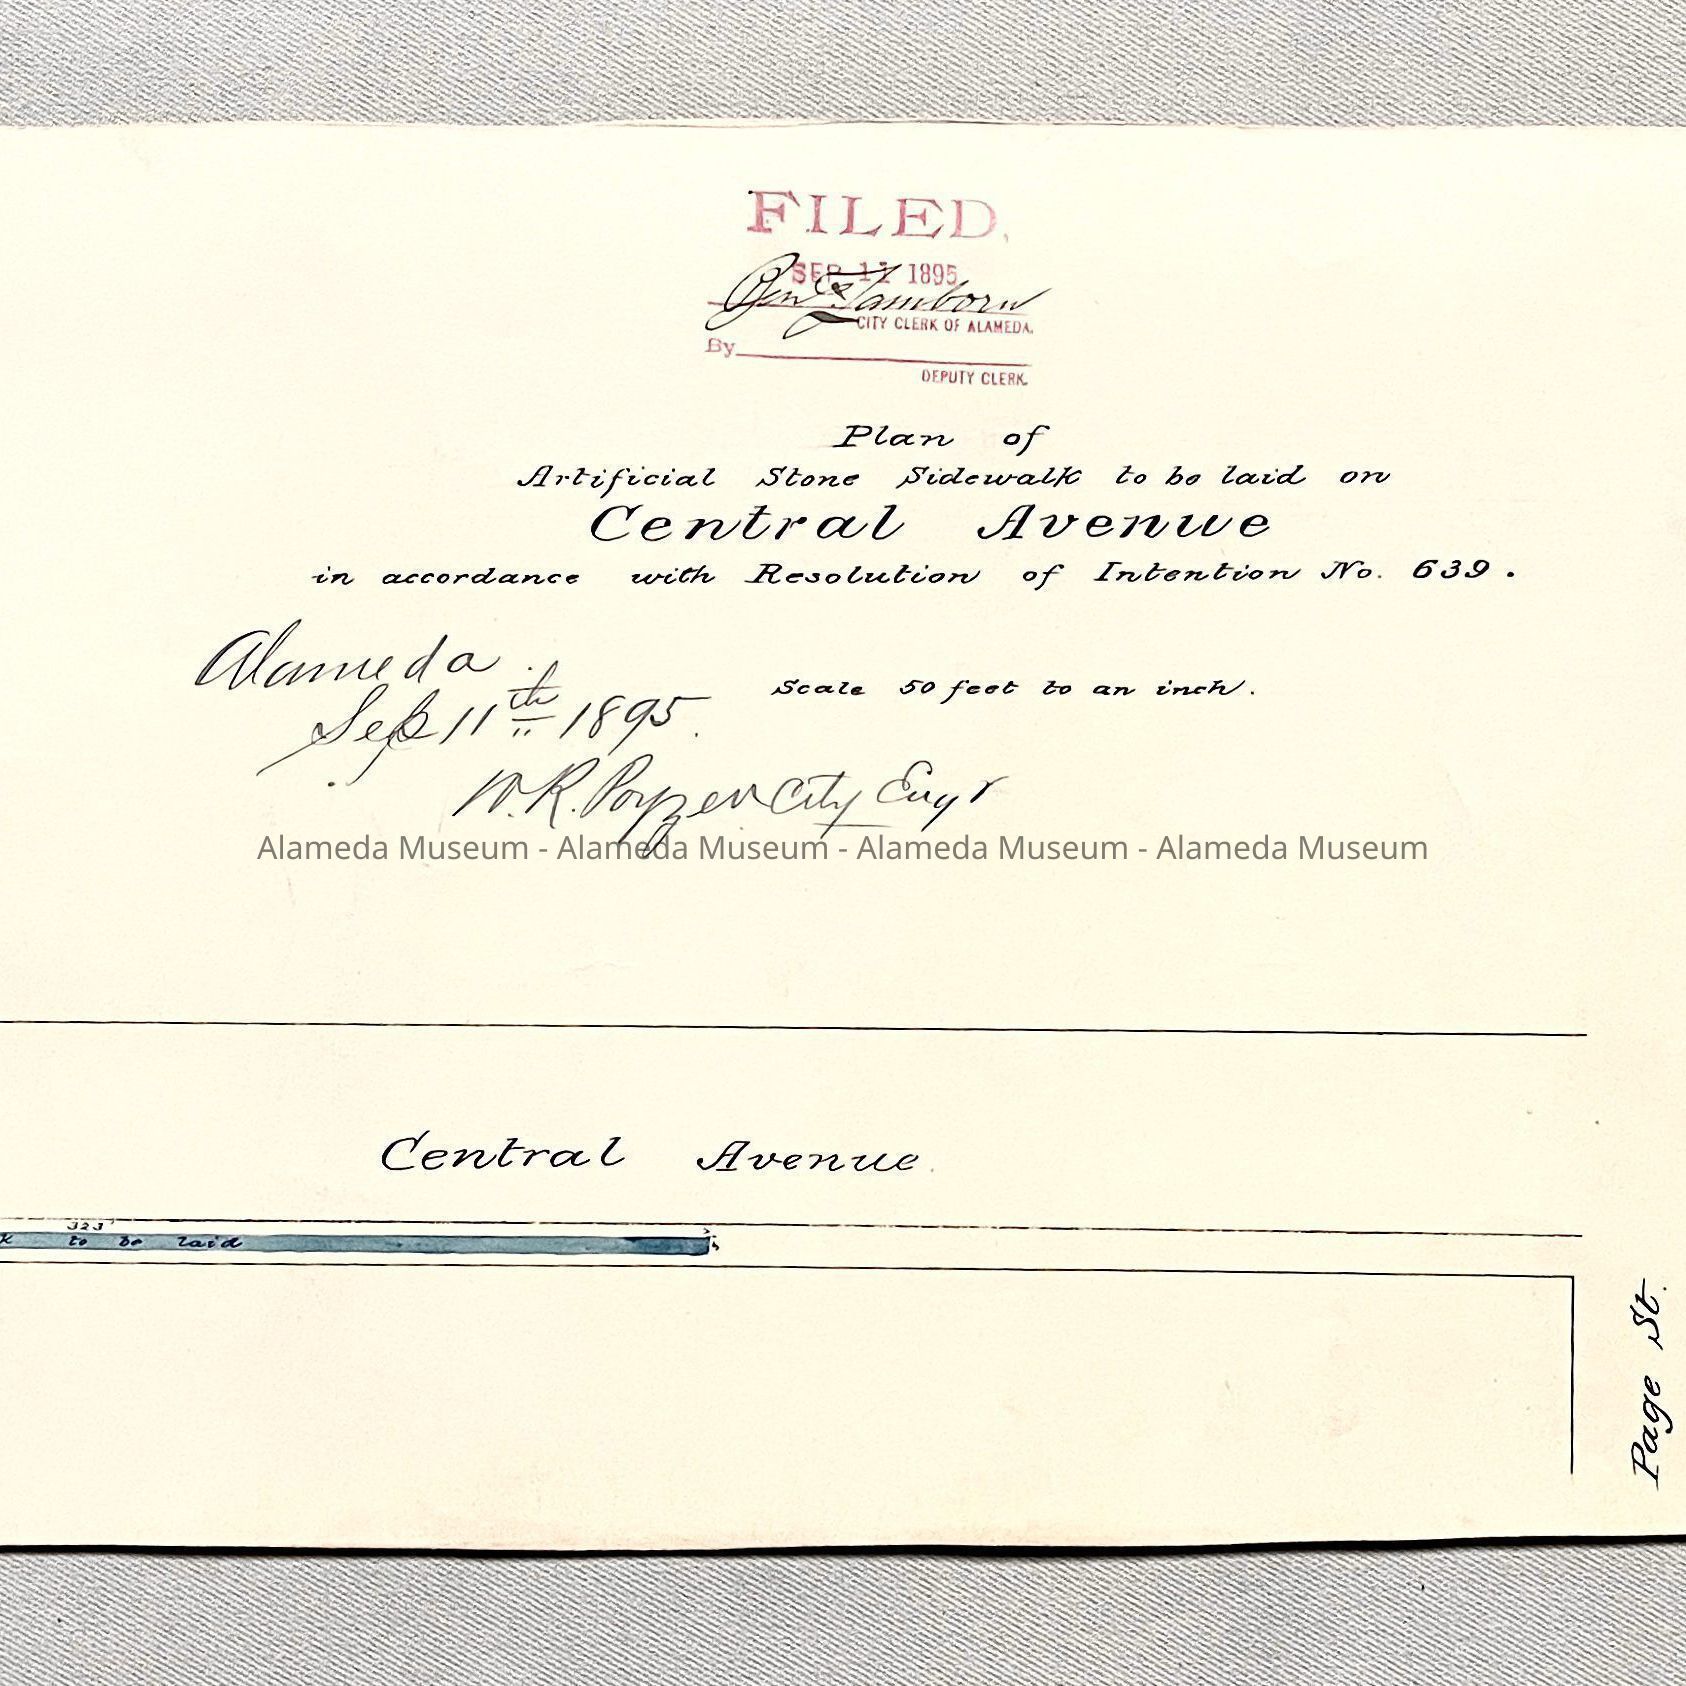 FILED.
SEP 1 1895
CITY CLERK OF ALAMEDA.
By
DEPUTY CLERK.
Plan of
Artificial Stone Sidewalk to be laid on
Central Avenue
in accordance with Resolution of Intention No. 639.
Alameda
Sep 11th 1895.
Scale 50 feet to an inch.
W. R. City Engr
Alameda Museum - Alameda Museum - Alameda Museum - Alameda Museum
Central Avenue.
323'
k to be laid
Page St.